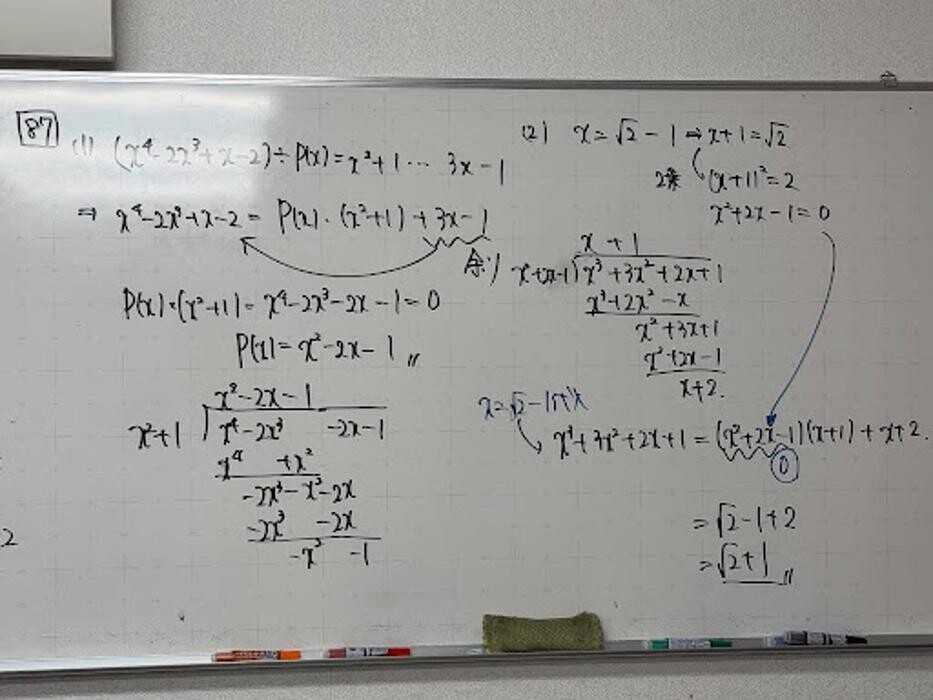 87
(1) (x⁴-2x³+x-2)÷P(x)=x²+1 … 3x-1
⇒ x⁴-2x³+x-2= P(x)・(x²+1)+3x-1
P(x)・(x²+1)= x⁴-2x³-2x-1=0
P(x)= x²-2x-1〃
x²-2x-1
x²+1 ) x⁴-2x³ -2x-1
x⁴ +x²
-2x³-x²-2x
-2x³ -2x
-x² -1
2
(2) x=√2-1 ⇒ x+1=√2
2乗 (x+1)²=2
x²+2x-1=0
x+1
x²+2x-1 ) x³+3x²+2x+1
x³+2x²-x
x²+3x+1
x²+2x-1
x+2.
x=√2-1代入
x³+3x²+2x+1 = (x²+2x-1)(x+1)+x+2.
0
=√2-1+2
=√2+1〃